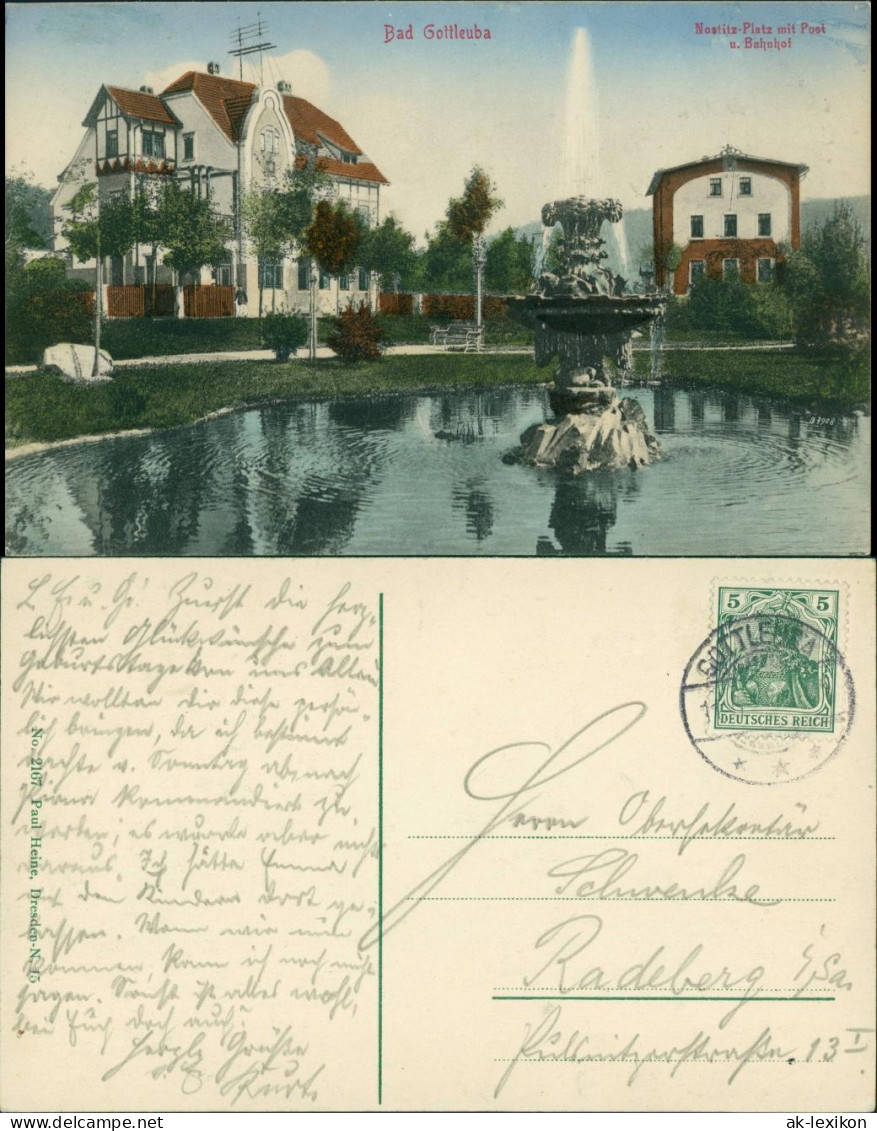 Bad Gottleuba
Nostitz-Platz mit Post
u. Bahnhof
L. F. u. G! Zuerst die herz-
lichsten Glückwünsche zum
Geburtstage von uns Allen
Wir wollten dir diese persön-
lich bringen, da ich bestimmt
dachte v. Sonntag ab nach
Pirna kommandiert zu
werden; es wurde aber nichts
daraus. Ich hätte Emma
mit den Kindern dort ge-
lassen. Wann wir nun
kommen, kann ich noch nicht
sagen. Sonst ist alles wohl,
bei Euch doch auch?
Herzl. Grüße
Kurt.
No. 2167 Paul Heine, Dresden-N. 15
5 5
DEUTSCHES REICH
GOTTLEUBA
Herrn Obersekretär
Schwenke
Radeberg i/Sa.
Pulsnitzerstraße 13 I
ak-lexikon